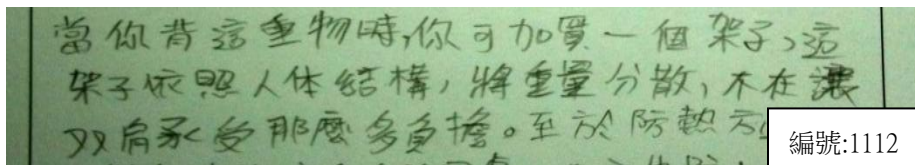 當你背這重物時,你可加買一個架子,這
架子依照人体結構,將重量分散,不在讓
双肩承受那麼多負擔。至於防熱方
編號:1112